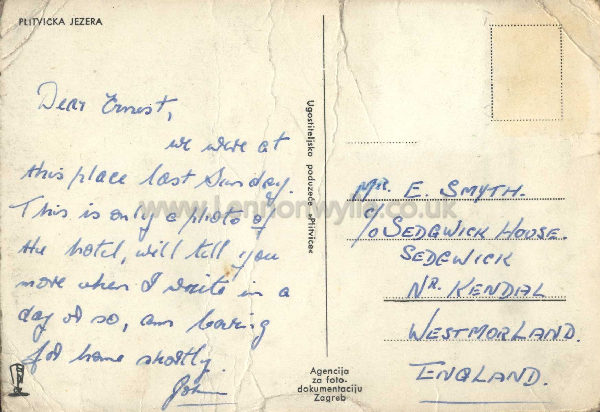 PLITVIČKA JEZERA
Dear Ernest,
we were at
this place last Sunday.
This is only a photo of
the hotel, will tell you
more when I write in a
day or so, am leaving
for home shortly.
John
Ugostiteljsko poduzeće »Plitvice«
Agencija
za foto-
dokumentaciju
Zagreb
MR. E. SMYTH.
C/O SEDGWICK HOUSE.
SEDGWICK
NR. KENDAL
WESTMORLAND.
ENGLAND.
www.Lennonwylie.co.uk